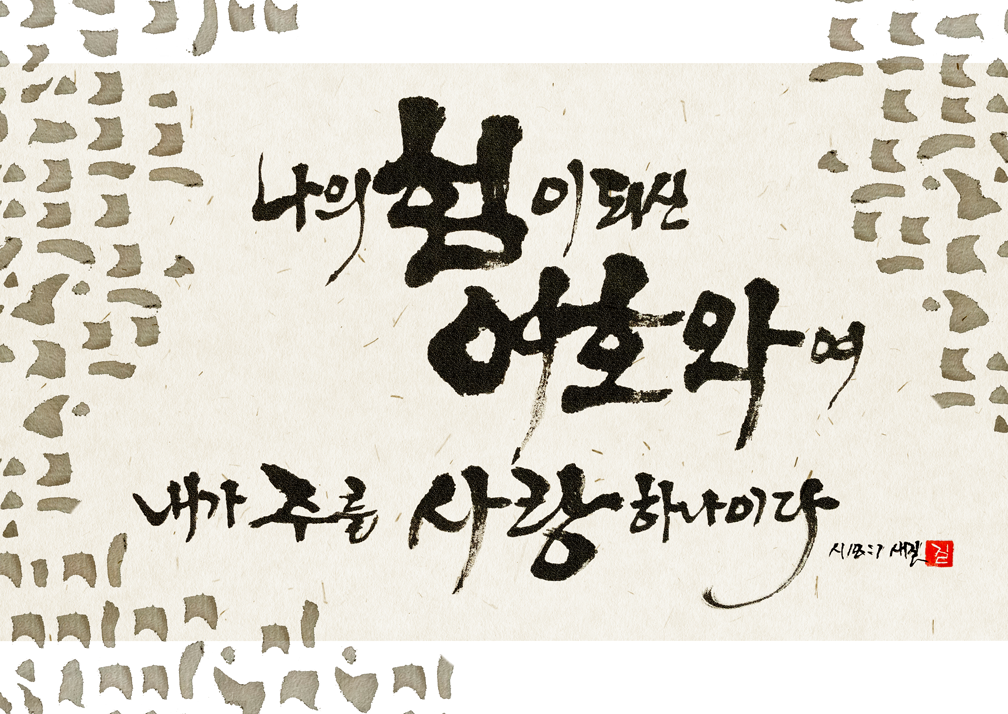 나의 힘이 되신
여호와여
내가 주를 사랑하나이다
시18:1 새길
길